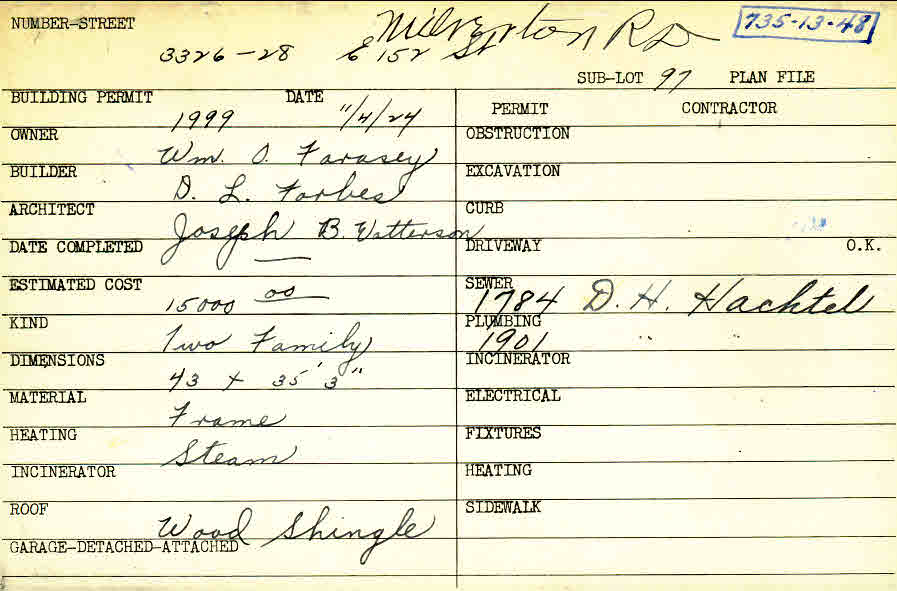 NUMBER-STREET Milverton RD 735-13-48
3326-28 E 152 St
SUB-LOT 97 PLAN FILE
BUILDING PERMIT DATE PERMIT CONTRACTOR
1999 11/4/24
OWNER OBSTRUCTION
Wm. O. Farasey
BUILDER EXCAVATION
D. L. Forbes
ARCHITECT CURB
Joseph B. Watterson
DATE COMPLETED DRIVEWAY O.K.
—
ESTIMATED COST SEWER
15000 00 1784 D. H. Hachtel
KIND PLUMBING
Two Family 1901 " "
DIMENSIONS INCINERATOR
43 x 35' 3"
MATERIAL ELECTRICAL
Frame
HEATING FIXTURES
Steam
INCINERATOR HEATING
ROOF SIDEWALK
Wood Shingle
GARAGE-DETACHED-ATTACHED